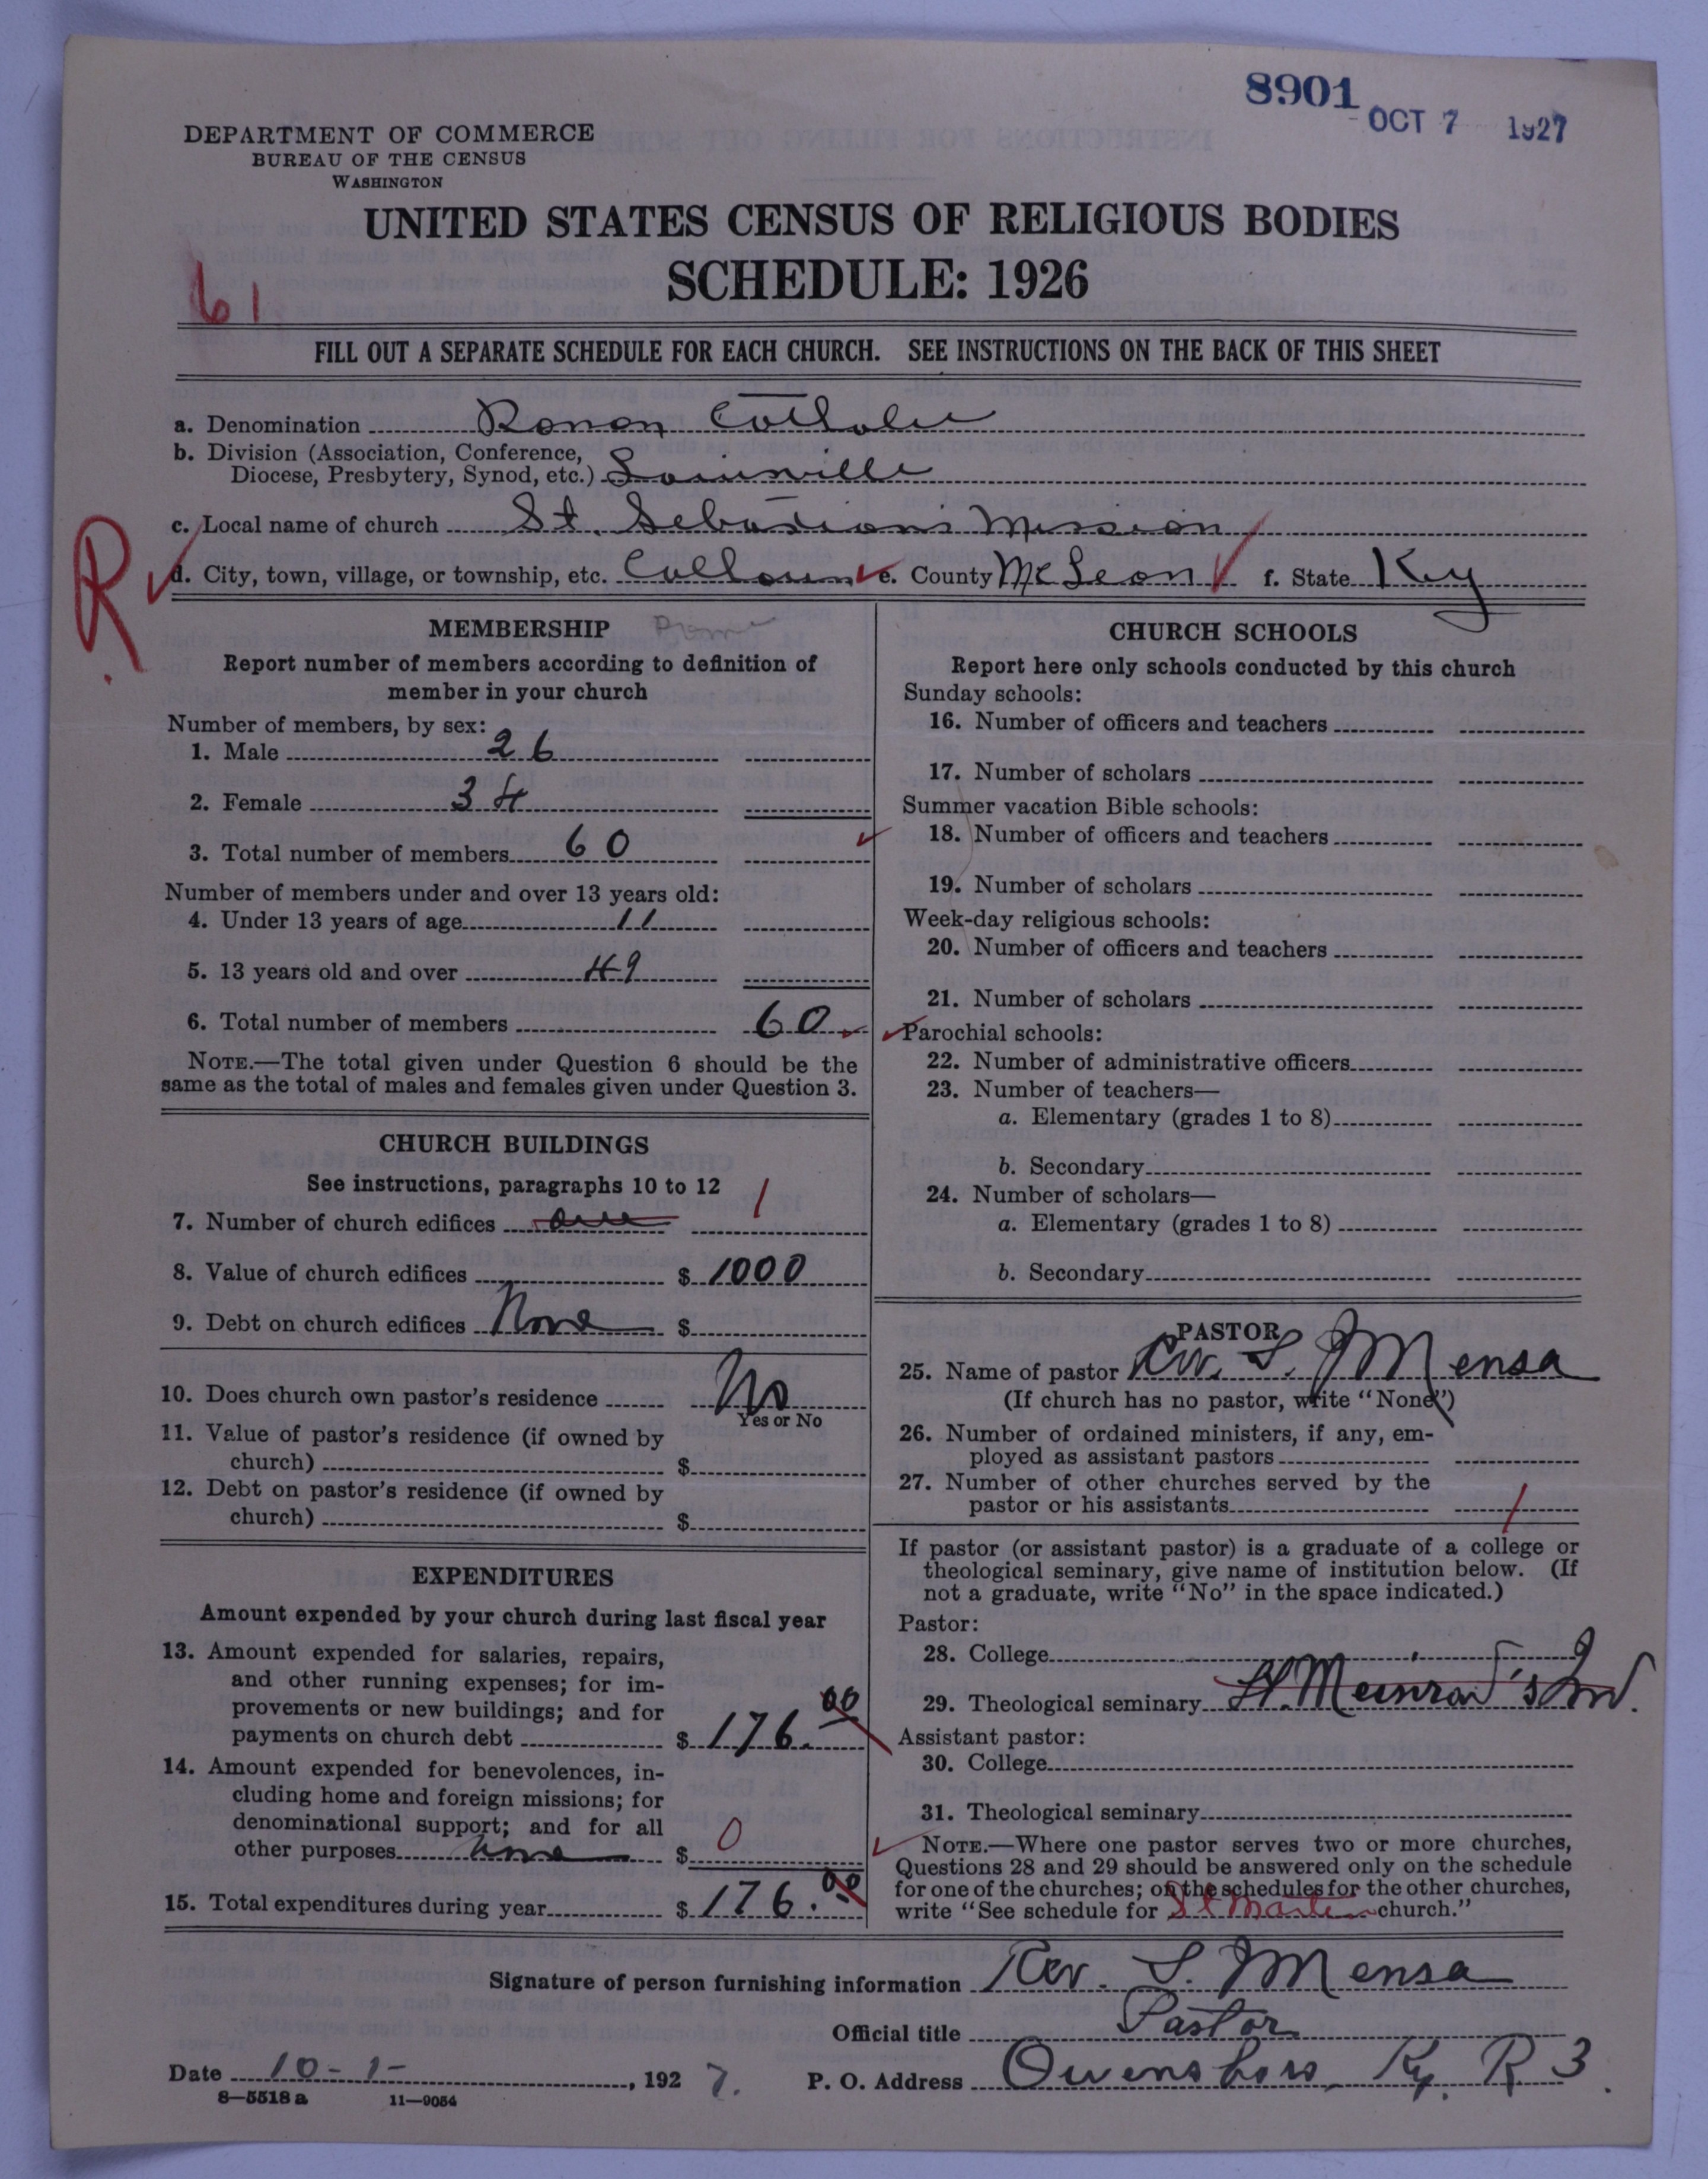 8901
OCT 7 1927
DEPARTMENT OF COMMERCE
BUREAU OF THE CENSUS
WASHINGTON
UNITED STATES CENSUS OF RELIGIOUS BODIES
SCHEDULE: 1926
61
FILL OUT A SEPARATE SCHEDULE FOR EACH CHURCH. SEE INSTRUCTIONS ON THE BACK OF THIS SHEET
a. Denomination Roman Catholic
b. Division (Association, Conference,
Diocese, Presbytery, Synod, etc.) Louisville
c. Local name of church St. Sebastian's Mission
R
d. City, town, village, or township, etc. Calhoun e. County McLean f. State Ky
MEMBERSHIP
Report number of members according to definition of
member in your church
Number of members, by sex:
1. Male 26
2. Female 34
3. Total number of members 60
Number of members under and over 13 years old:
4. Under 13 years of age 11
5. 13 years old and over 49
6. Total number of members 60
NOTE.—The total given under Question 6 should be the
same as the total of males and females given under Question 3.
CHURCH BUILDINGS
See instructions, paragraphs 10 to 12
7. Number of church edifices one 1
8. Value of church edifices $ 1000
9. Debt on church edifices None $
10. Does church own pastor's residence No
Yes or No
11. Value of pastor's residence (if owned by
church) $
12. Debt on pastor's residence (if owned by
church) $
EXPENDITURES
Amount expended by your church during last fiscal year
13. Amount expended for salaries, repairs,
and other running expenses; for im-
provements or new buildings; and for
payments on church debt $ 176.00
14. Amount expended for benevolences, in-
cluding home and foreign missions; for
denominational support; and for all
other purposes none $ 0
15. Total expenditures during year $ 176.00
CHURCH SCHOOLS
Report here only schools conducted by this church
Sunday schools:
16. Number of officers and teachers
17. Number of scholars
Summer vacation Bible schools:
18. Number of officers and teachers
19. Number of scholars
Week-day religious schools:
20. Number of officers and teachers
21. Number of scholars
Parochial schools:
22. Number of administrative officers
23. Number of teachers—
a. Elementary (grades 1 to 8)
b. Secondary
24. Number of scholars—
a. Elementary (grades 1 to 8)
b. Secondary
PASTOR
25. Name of pastor Rev. L. J Mensa
(If church has no pastor, write "None")
26. Number of ordained ministers, if any, em-
ployed as assistant pastors
27. Number of other churches served by the
pastor or his assistants 1
If pastor (or assistant pastor) is a graduate of a college or
theological seminary, give name of institution below. (If
not a graduate, write "No" in the space indicated.)
Pastor:
28. College
29. Theological seminary St. Meinrad's Ind.
Assistant pastor:
30. College
31. Theological seminary
NOTE.—Where one pastor serves two or more churches,
Questions 28 and 29 should be answered only on the schedule
for one of the churches; on the schedules for the other churches,
write "See schedule for St Martin church."
Signature of person furnishing information Rev. L. J Mensa
Official title Pastor
Date 10-1-, 1927. P. O. Address Owensboro, Ky. R 3.
8—5518 a 11—9054